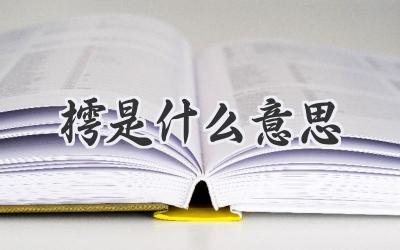 摴是什么意思